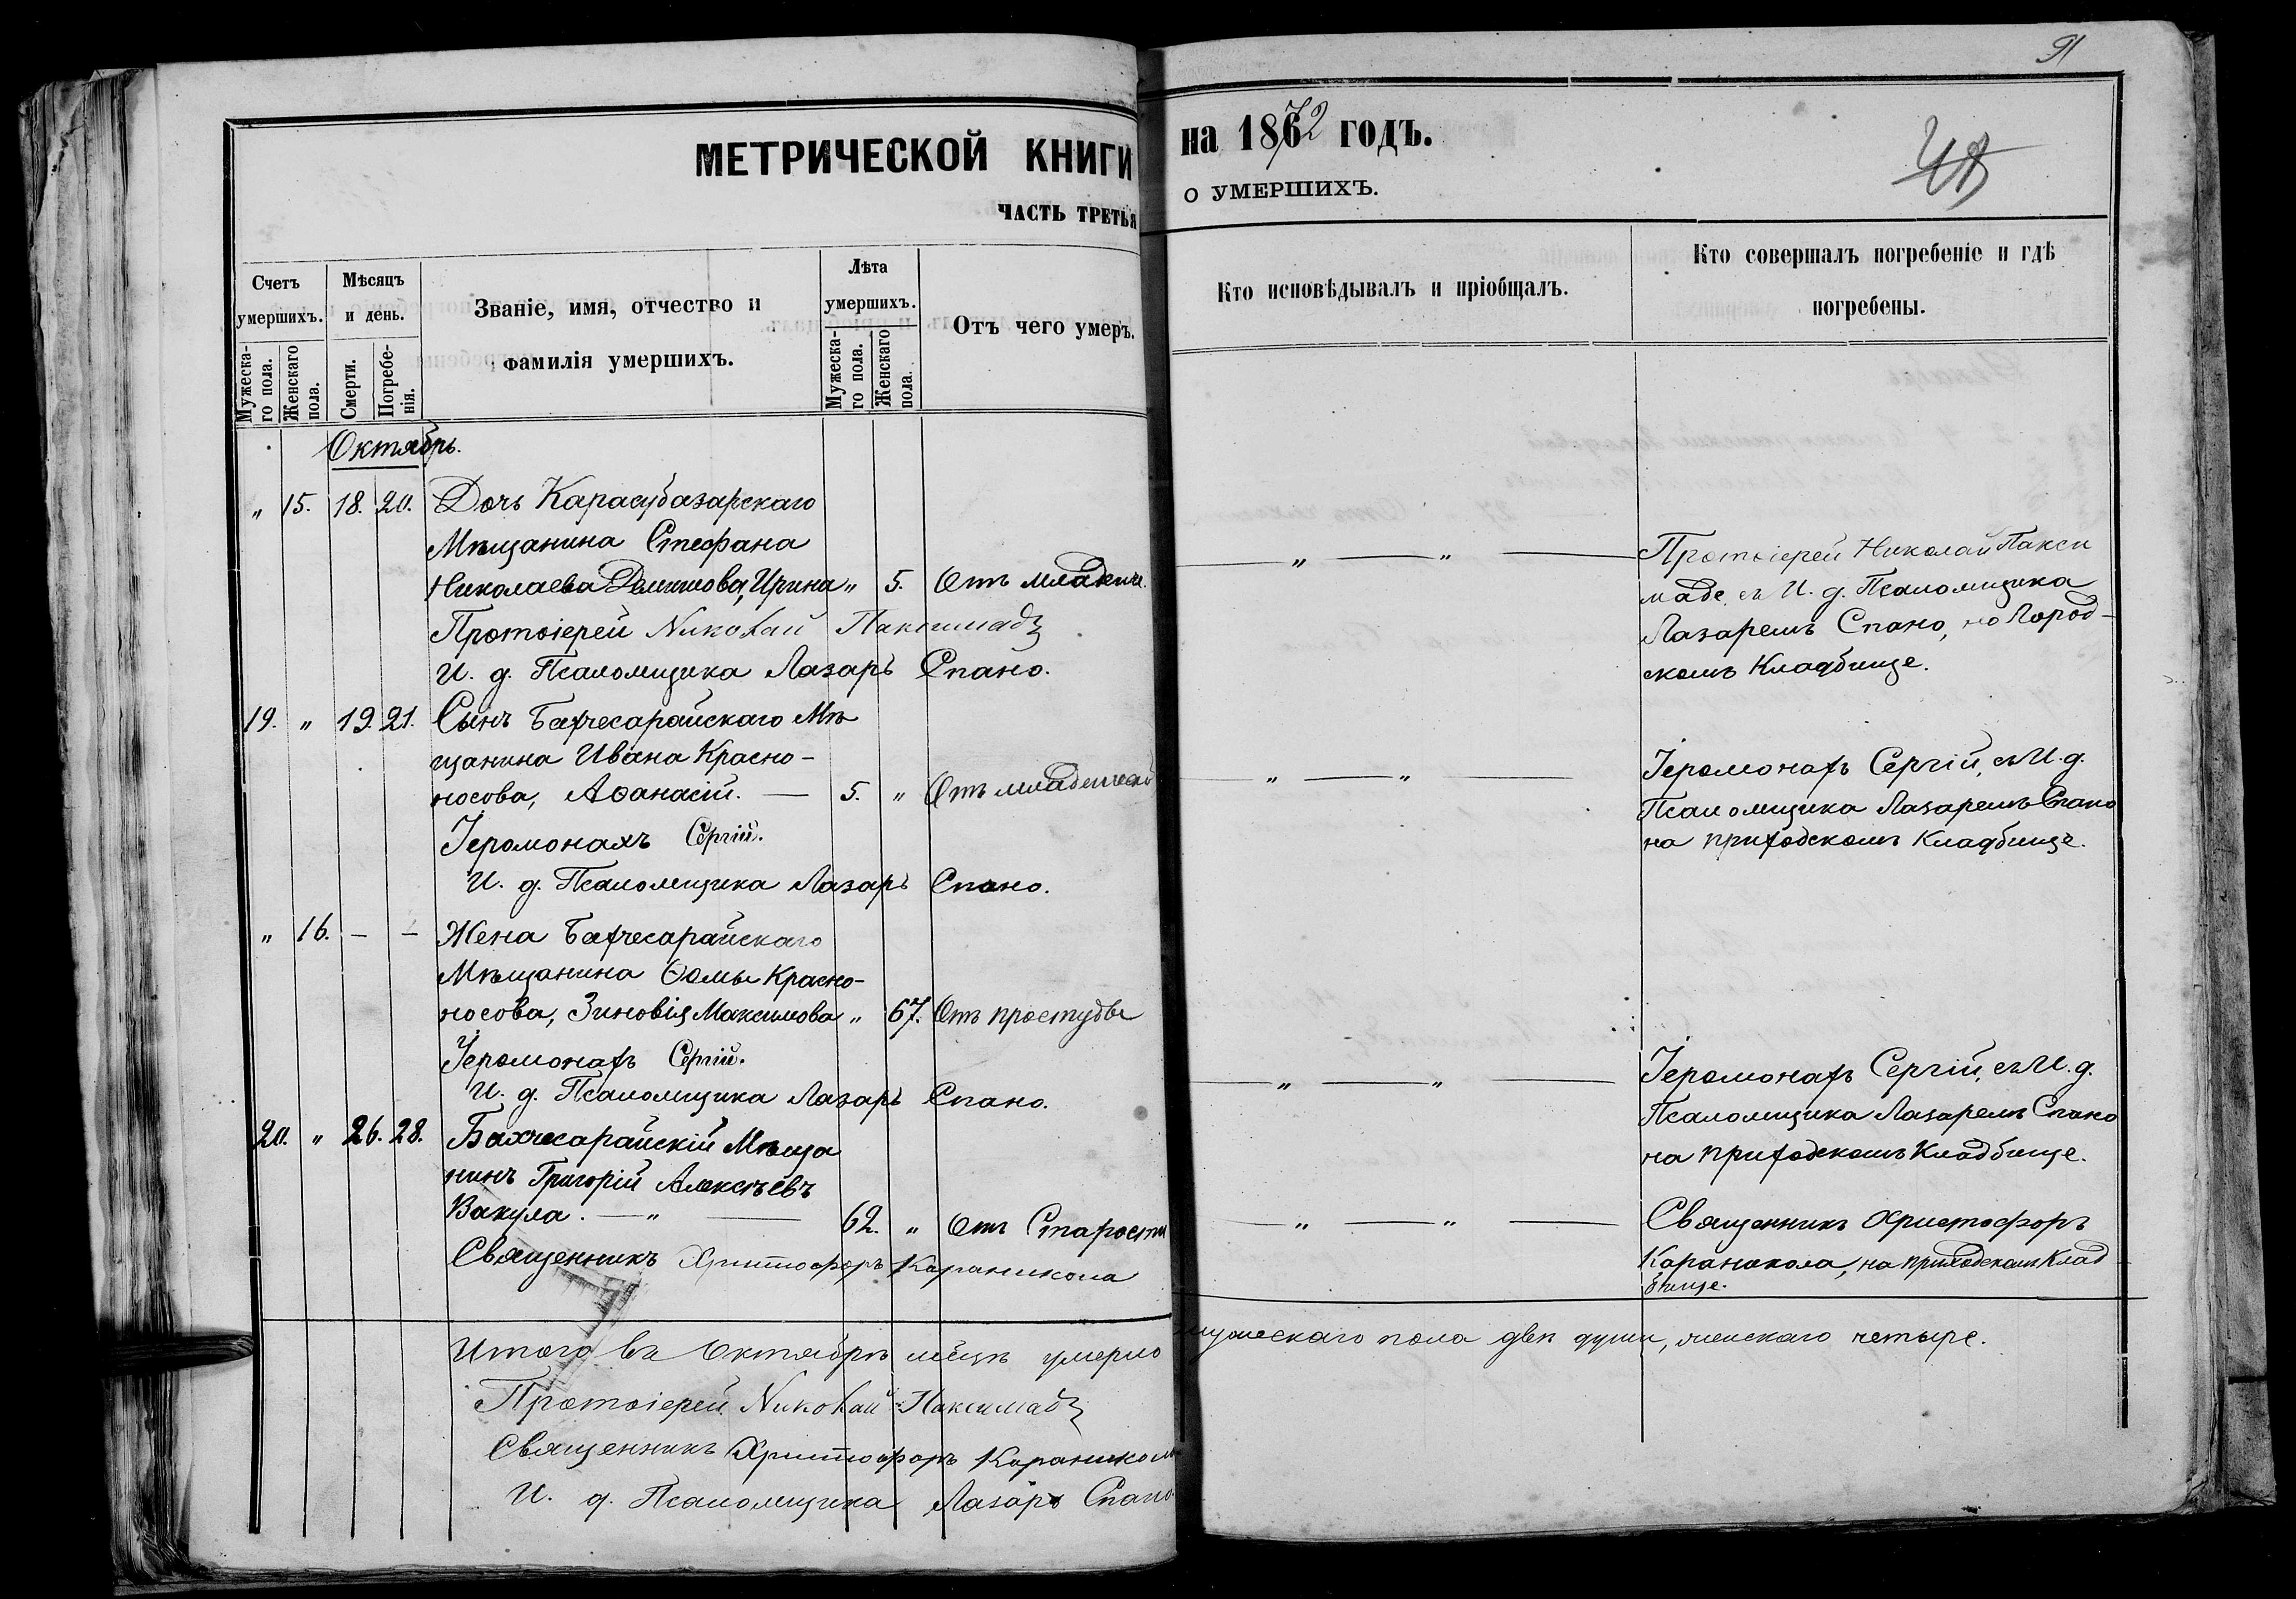 91
МЕТРИЧЕСКОЙ КНИГИ
на 1872 годъ.
ЧАСТЬ ТРЕТЬЯ
о УМЕРШИХЪ.
Счетъ умершихъ.
Мужеска-го пола.
Женскаго пола.
Мѣсяцъ и день.
Смерти.
Погребе-нія.
Званіе, имя, отчество и
фамилія умершихъ.
Лѣта умершихъ.
Мужеска-го пола.
Женскаго пола.
Отъ чего умеръ.
Кто исповѣдывалъ и пріобщалъ.
Кто совершалъ погребеніе и гдѣ
погребены.
Октябрь.
" 15. 18. 20. Дочь Карасубазарскаго
Мѣщанина Стефана
Николаева Ирина " 5. Отъ младенч.
Протоіерей Николай Паксимадз
И. д. Псаломщика Лазарь Спано.
" — " — Протоіерей Николай Пакси
маде, съ И. д. Псаломщика
Лазаремъ Спано, на Город-
скомъ Кладбище.
19. " 19. 21. Сынъ Бахчесарайскаго Мѣ
щанина Ивана Красно-
носова, Аѳанасій. — 5. " Отъ младенческ
Іеромонахъ Сергій.
И. д. Псаломщика Лазарь Спано.
" — " — Іеромонахъ Сергій, съ И. д.
Псаломщика Лазаремъ Спано
на приходскомъ Кладбище.
" 16. — — Жена Бахчесарайскаго
Мѣщанина Ѳомы Красно-
носова, Зиновія Максимова " 67. Отъ простуды
Іеромонахъ Сергій.
И. д. Псаломщика Лазарь Спано.
" — " — Іеромонахъ Сергій, съ И. д.
Псаломщика Лазаремъ Спано
на приходскомъ Кладбище.
20. " 26. 28. Бахчесарайскій Мѣща
нинъ Григорій Алексѣевъ
Вакула. — " — 62. " Отъ Старости
Священникъ Христофоръ Караникола
" — " — Священникъ Христофоръ
Караникола, на приходскомъ Клад
бище.
Итого въ Октябрѣ мѣцѣ умерло мужескаго пола двѣ души, женскаго четыре.
Протоіерей Николай Паксимадз
Священникъ Христофоръ Караникола
И. д. Псаломщика Лазарь Спано.